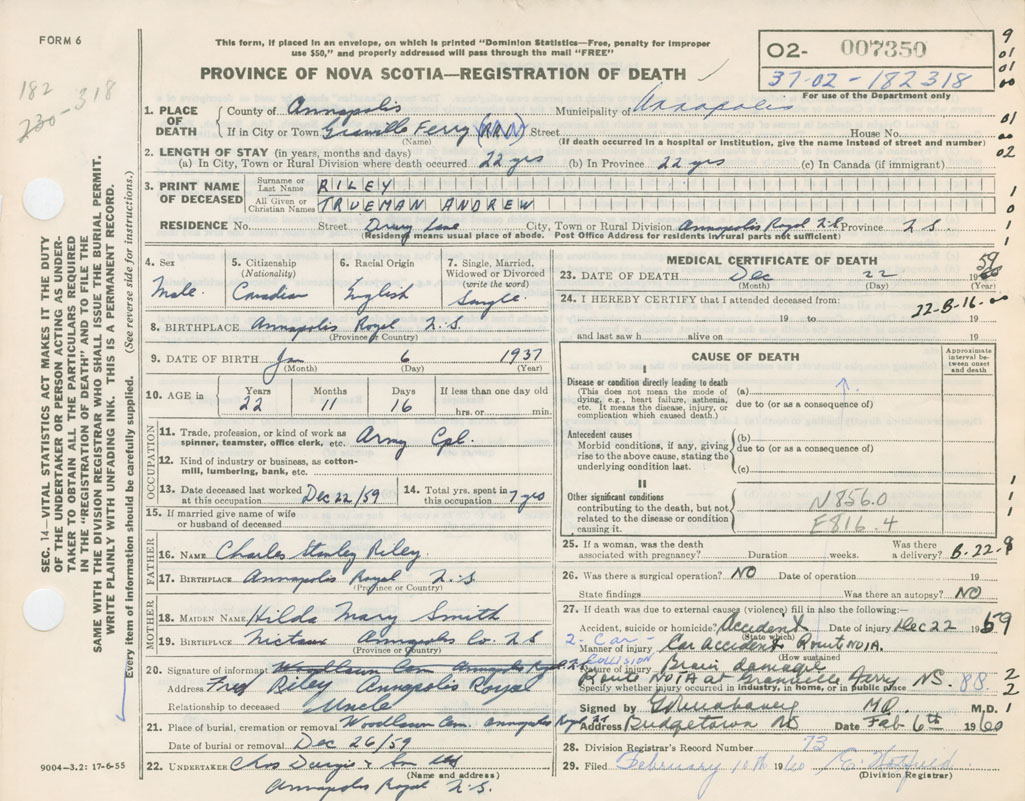 FORM 6
This form, if placed in an envelope, on which is printed "Dominion Statistics—Free, penalty for improper
use $50," and properly addressed will pass through the mail "FREE"
PROVINCE OF NOVA SCOTIA—REGISTRATION OF DEATH
O2- 007350
37-02-182318
For use of the Department only
182
230-318
9
01
01
00
01
00
02
1
0
1
1
1. PLACE OF DEATH
County of Annapolis Municipality of Annapolis
If in City or Town Granville Ferry Street House No.
(Name) (If death occurred in a hospital or institution, give the name instead of street and number)
2. LENGTH OF STAY (in years, months and days)
(a) In City, Town or Rural Division where death occurred 22 yrs (b) In Province 22 yrs (c) In Canada (if immigrant)
3. PRINT NAME OF DECEASED
Surname or Last Name RILEY
All Given or Christian Names TRUEMAN ANDREW
RESIDENCE No. Street Drury Lane City, Town or Rural Division Annapolis Royal N.S. Province N.S.
(Residence means usual place of abode. Post Office Address for residents in rural parts not sufficient)
4. Sex
Male.
5. Citizenship
(Nationality)
Canadian
6. Racial Origin
English
7. Single, Married,
Widowed or Divorced
(write the word)
Single.
8. BIRTHPLACE Annapolis Royal N.S.
(Province or Country)
9. DATE OF BIRTH Jan 6 1937
(Month) (Day) (Year)
10. AGE in
Years Months Days If less than one day old
22 11 16 hrs. or min.
OCCUPATION
11. Trade, profession, or kind of work as
spinner, teamster, office clerk, etc. Army Cpl.
12. Kind of industry or business, as cotton-
mill, lumbering, bank, etc.
13. Date deceased last worked
at this occupation Dec 22/59
14. Total yrs. spent in
this occupation 7 yrs
15. If married give name of wife
or husband of deceased
FATHER
16. NAME Charles Stanley Riley.
17. BIRTHPLACE Annapolis Royal N.S.
(Province or Country)
MOTHER
18. MAIDEN NAME Hilda Mary Smith
19. BIRTHPLACE Nictaux Annapolis Co. N.S
(Province or Country)
20. Signature of informant Woodlawn Cem Annapolis Royal N.S.
Address Fred Riley Annapolis Royal
Relationship to deceased Uncle
21. Place of burial, cremation or removal Woodlawn Cem. Annapolis Royal NS
Date of burial or removal Dec 26/59
22. UNDERTAKER Chas Durgie & Son Ltd
(Name and address)
Annapolis Royal N.S.
9004-3.2: 17-6-55
MEDICAL CERTIFICATE OF DEATH
23. DATE OF DEATH Dec 22 1959
(Month) (Day) (Year)
24. I HEREBY CERTIFY that I attended deceased from:
22-B-16-00
19 to 19
and last saw h alive on 19
CAUSE OF DEATH
Approximate interval between onset and death
I
Disease or condition directly leading to death
(This does not mean the mode of
dying, e.g., heart failure, asthenia,
etc. It means the disease, injury, or
complication which caused death.)
(a)
due to (or as a consequence of)
Antecedent causes
Morbid conditions, if any, giving
rise to the above cause, stating the
underlying condition last.
(b)
due to (or as a consequence of)
(c)
II
Other significant conditions
contributing to the death, but not
related to the disease or condition
causing it.
N856.0
E816.4
1
1
1
25. If a woman, was the death
associated with pregnancy? Duration weeks. Was there a delivery? B-22-9
26. Was there a surgical operation? NO Date of operation 19
State findings Was there an autopsy? NO
27. If death was due to external causes (violence) fill in also the following:—
Accident, suicide or homicide? Accident Date of injury Dec 22 1959
(State which)
2-Car- Collision
Manner of injury Car Accident Route NO1A.
(How sustained)
Nature of injury Brain damage
Route NO1A at Granville Ferry NS. 88
Specify whether injury occurred in industry, in home, or in public place
2
2
1
Signed by M.D. M.D.
Address Bridgetown NS Date Feb 6th 1960
28. Division Registrar's Record Number 73
29. Filed February 10th 1960
(Division Registrar)
SEC. 14—VITAL STATISTICS ACT MAKES IT THE DUTY
OF THE UNDERTAKER OR PERSON ACTING AS UNDER-
TAKER TO OBTAIN ALL THE PARTICULARS REQUIRED
IN THE "REGISTRATION OF DEATH" AND TO FILE THE
SAME WITH THE DIVISION REGISTRAR WHO SHALL ISSUE THE BURIAL PERMIT.
WRITE PLAINLY WITH UNFADING INK. THIS IS A PERMANENT RECORD.
Every item of information should be carefully supplied. (See reverse side for instructions.)